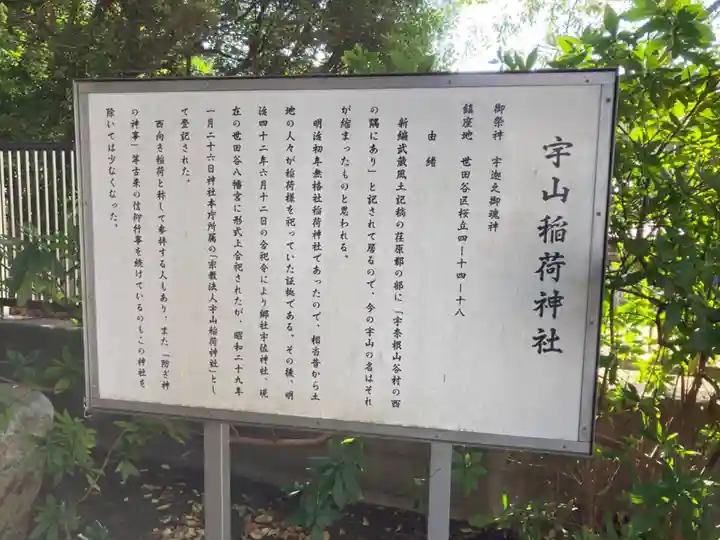 宇山稲荷神社
御祭神　宇迦之御魂神
鎮座地　世田谷区桜丘四ー十四ー十八
由緒
新編武蔵風土記稿の荏原郡の部に「宇奈根山谷村の西
の隅にあり」と記されて居るので、今の宇山の名はそれ
が縮まったものと思われる。
明治初年無格社稲荷神社であったので、相当昔から土
地の人々が稲荷様を祀っていた証拠である。その後、明
治四十二年六月十二日の合祀令により郷社宇佐神社、現
在の世田谷八幡宮に形式上合祀されたが、昭和二十九年
一月二十六日神社本庁所属の「宗教法人宇山稲荷神社」とし
て登記された。
西向き稲荷と称して参拝する人もあり、また「防ぎ神
の神事」等古来の信仰行事を続けているのもこの神社を
除いては少なくなった。